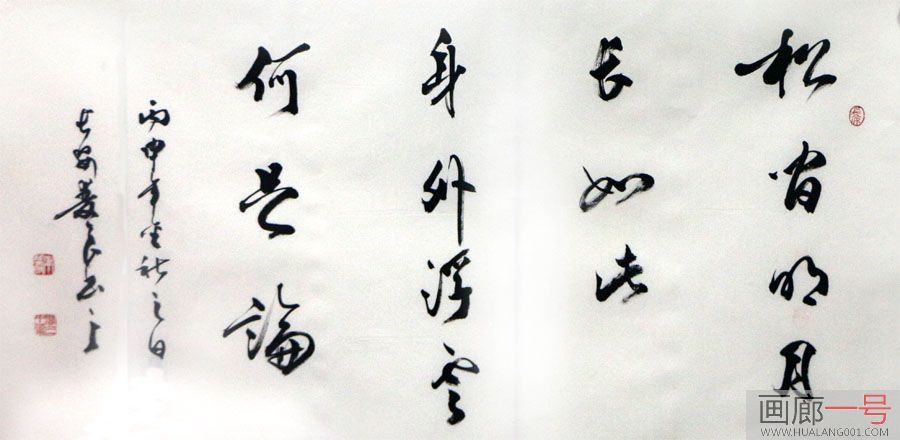 松间明月
长如此
身外浮云
何足论
丙申年金秋之日
长安
画廊一号
WWW.HUALANG001.COM